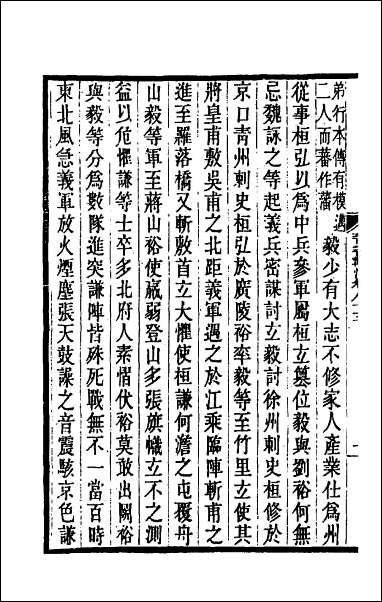 弟行本傳有模邁
二人而蕃作藩
毅少有大志不修家人產業仕爲州
從事桓弘以爲中兵參軍屬桓玄篡位毅與劉裕何無
忌魏詠之等起義兵密謀討玄毅討徐州刺史桓修於
京口青州刺史桓弘於廣陵裕率毅等至竹里玄使其
將皇甫敷吳甫之北距義軍遇之於江乘臨陣斬甫之
進至羅落橋又斬敷首玄大懼使桓謙何澹之屯覆舟
山毅等軍至蔣山裕使羸弱登山多張旗幟玄不之測
益以危懼謙等士卒多北府人素慴伏裕莫敢出鬭裕
與毅等分爲數隊進突謙陣皆殊死戰無不一當百時
東北風急義軍放火煙塵張天鼓譟之音震駭京色謙